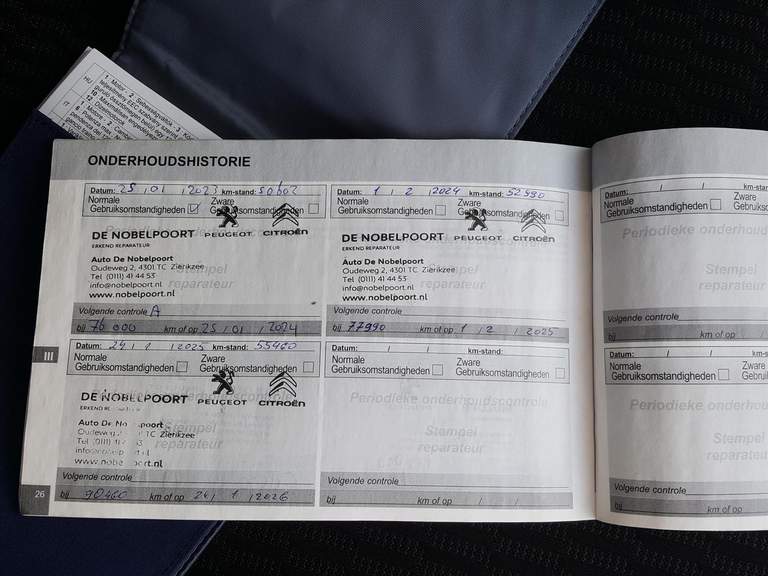 HU
IT
ONDERHOUDSHISTORIE
Datum: 25 / 01 / 2023 km-stand: 50602
Normale Gebruiksomstandigheden
Zware Gebruiksomstandigheden
DE NOBELPOORT PEUGEOT CITROËN
ERKEND REPARATEUR
Auto De Nobelpoort
Oudeweg 2, 4301 TC Zierikzee
Tel (0111) 41 44 53
info@nobelpoort.nl
www.nobelpoort.nl
Stempel
reparateur
Volgende controle A
bij 76 000 km of op 25 / 01 / 2024
Datum: 1 / 2 / 2024 km-stand: 52990
Normale Gebruiksomstandigheden
Zware Gebruiksomstandigheden
DE NOBELPOORT PEUGEOT CITROËN
ERKEND REPARATEUR
Auto De Nobelpoort
Oudeweg 2, 4301 TC Zierikzee
Tel (0111) 41 44 53
info@nobelpoort.nl
www.nobelpoort.nl
Stempel
reparateur
Volgende controle
bij 77990 km of op 1 / 2 / 2025
III
Datum: 24 / 1 / 2025 km-stand: 55460
Normale Gebruiksomstandigheden
Zware Gebruiksomstandigheden
DE NOBELPOORT PEUGEOT CITROËN
ERKEND
Auto De Nobelpoort
Oudeweg TC Zierikzee
Tel (0111)
www.nobelpoort.nl
Stempel
reparateur
Volgende controle
bij 90460 km of op 24 / 1 / 2026
Datum: / / km-stand:
Normale Gebruiksomstandigheden
Zware Gebruiksomstandigheden
Periodieke onderhoudscontrole
Stempel
reparateur
Volgende controle
bij km of op / /
26
Datum: / / km-stand:
Normale Gebruiksomstandigheden
Zware
Periodieke
Stempel
reparateur
Volgende controle
bij km of op /
Datum: / / km-stand:
Normale Gebruiksomstandigheden
Zware
Periodieke
Stempel
reparateur
Volgende controle
bij km of op /